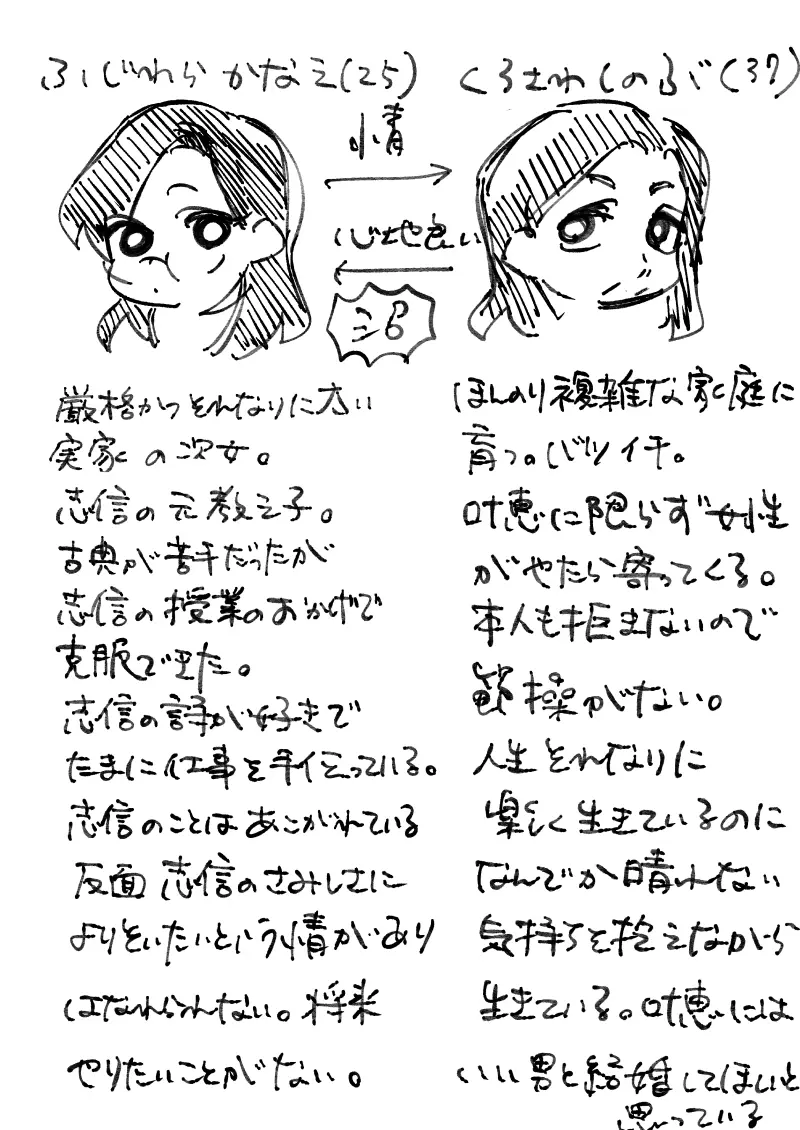 ふじわら かなえ(25)
くろさわ しのぶ(37)
情
心地良い
沼
厳格かつそれなりに太い
実家の次女。
志信の元教え子。
古典が苦手だったが
志信の授業のおかげで
克服できた。
志信の詩が好きで
たまに仕事を手伝っている。
志信のことはあこがれている
反面 志信のさみしさに
よりそいたいという情があり
はなれられない。将来
やりたいことがない。
ほんのり複雑な家庭に
育つ。バツイチ。
叶恵に限らず女性
がやたら寄ってくる。
本人も拒まないので
節操がない。
人生それなりに
楽しく生きているのに
なんでか晴れない
気持ちを抱えながら
生きている。叶恵には
いい男と結婚してほしいと
思っている